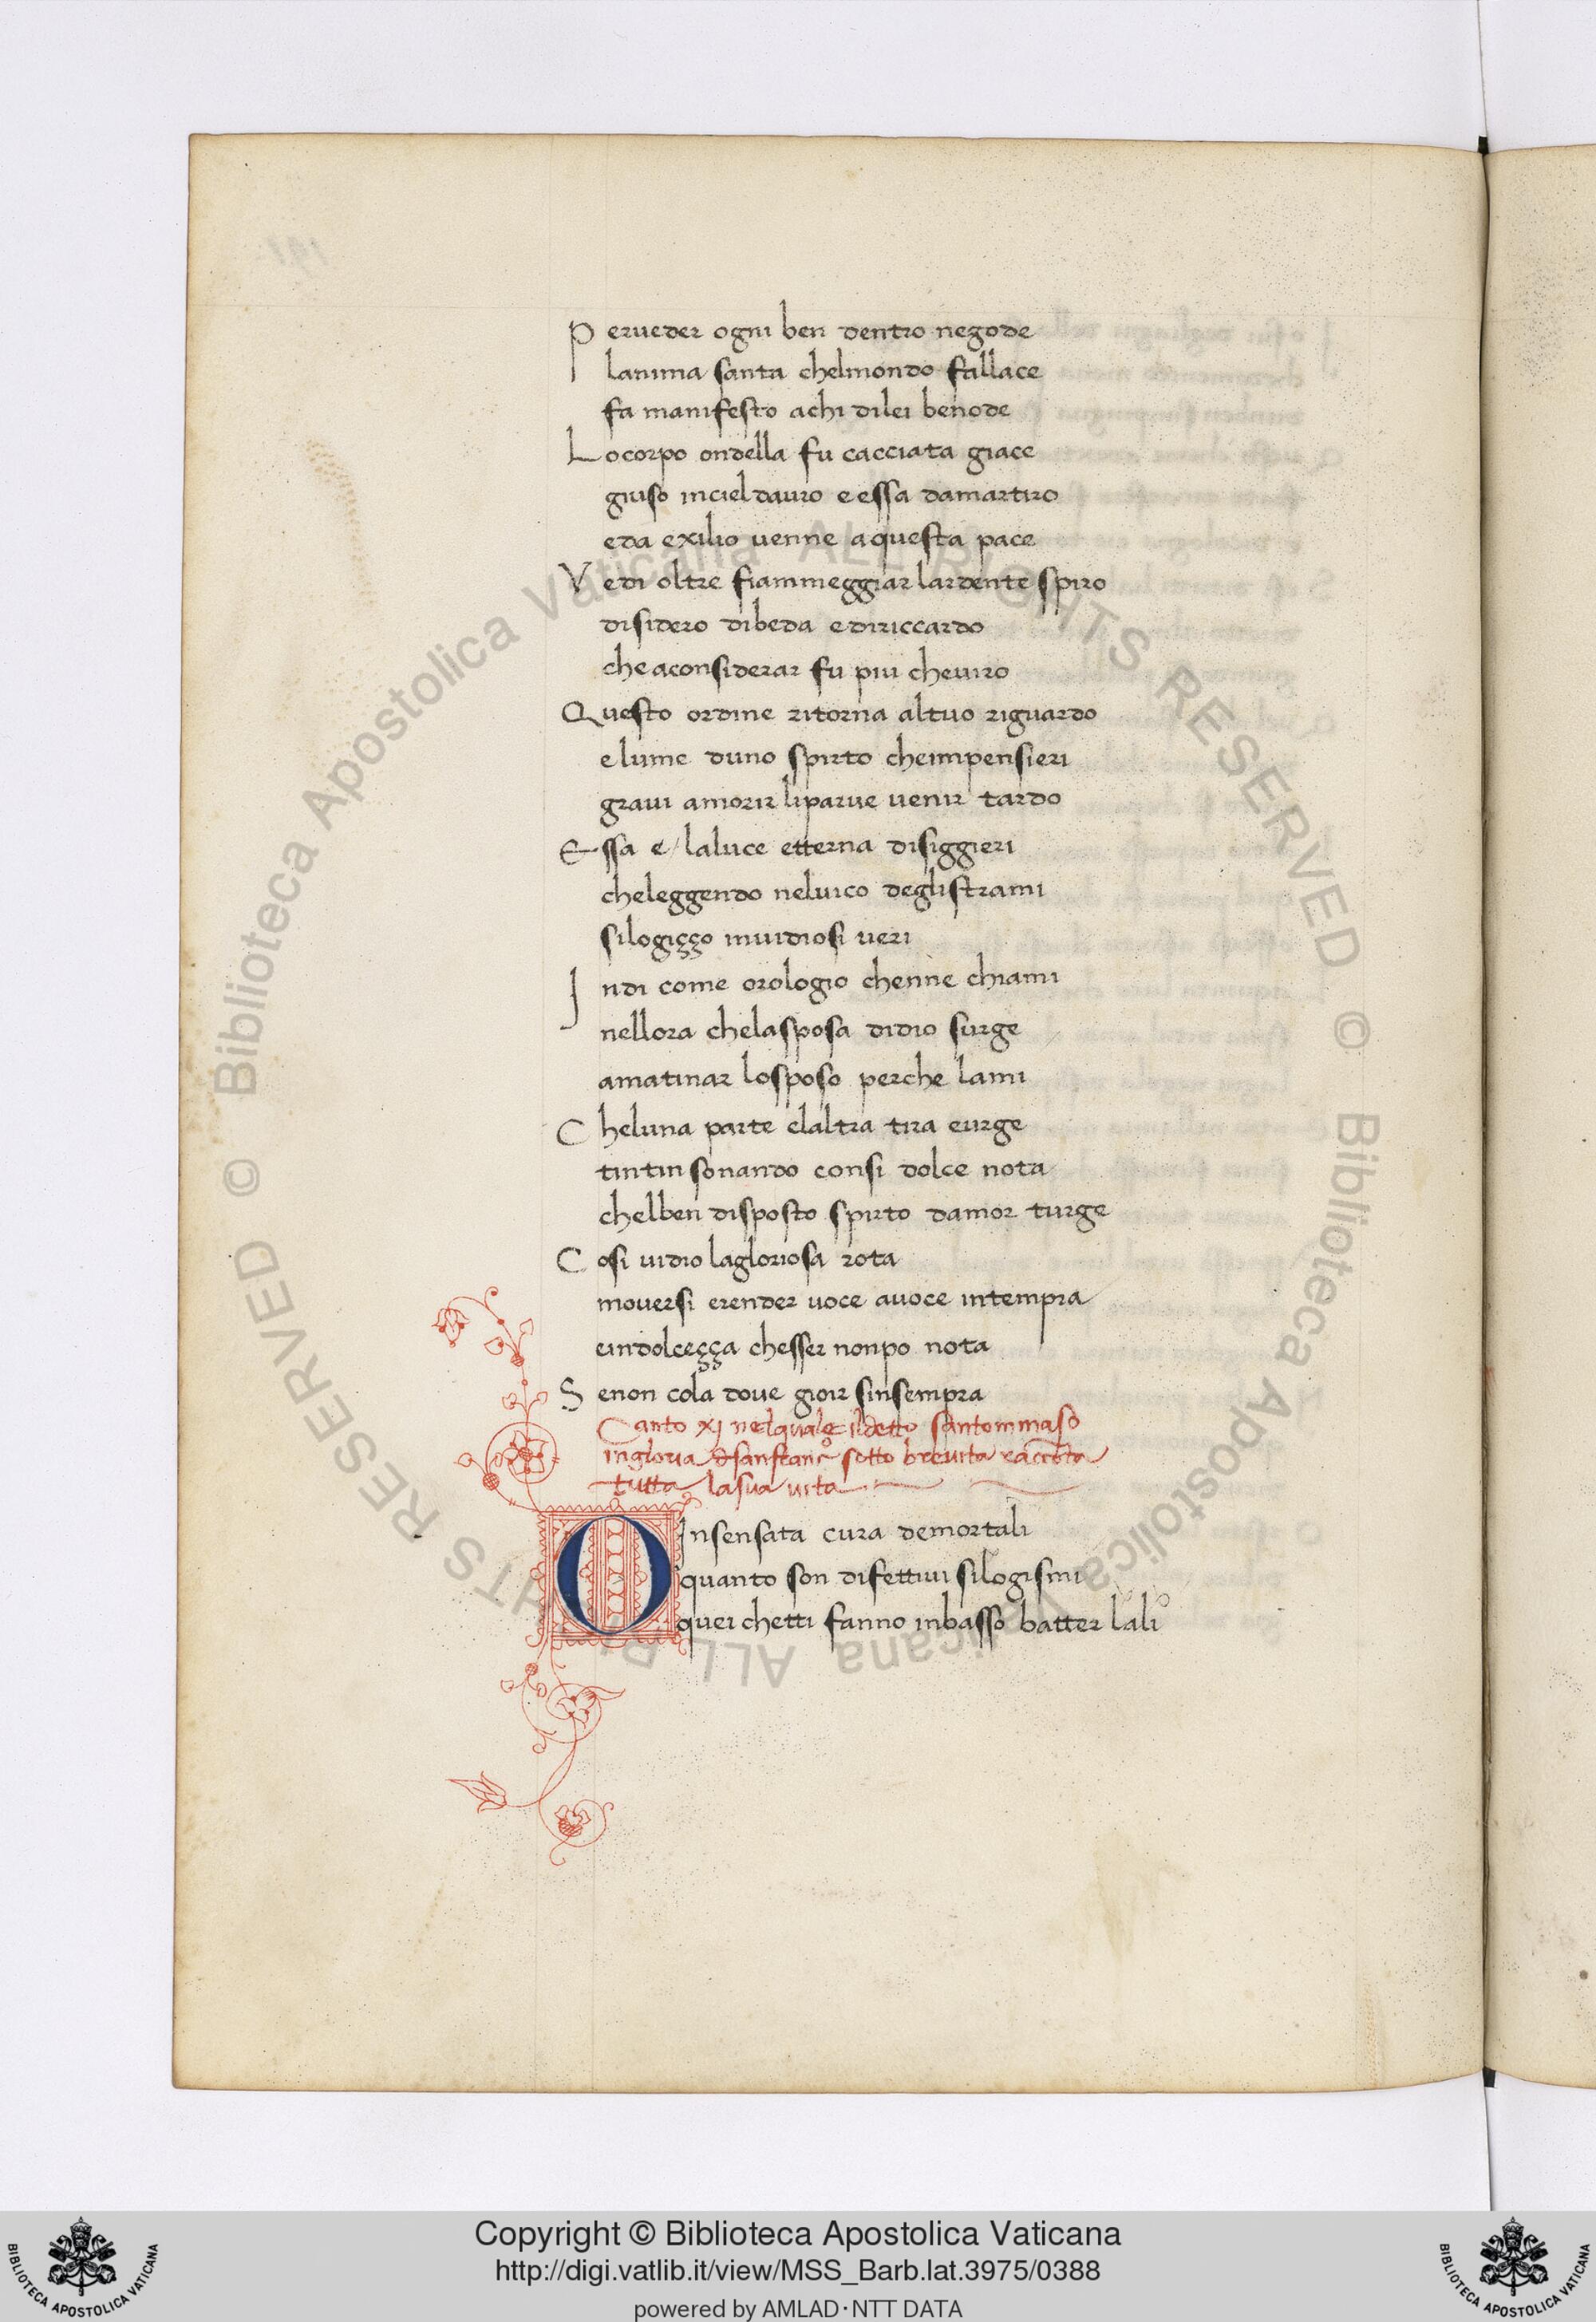 Perueder ogni ben dentro negode
lanima santa chelmondo fallace
fa manifesto achi dilei benode
Locorpo ondella fu cacciata giace
giuso incieldauro e essa damartiro
eda exilio uenne aquesta pace
Vedi oltre fiammeggiar lardente spiro
disidero dibeda ediriccardo
che aconsiderar fu piu cheuiro
Questo ordine ritorna altuo riguardo
elume duno spirto cheimpensieri
graui amorir liparue uenir tardo
Essa e/ laluce etterna disiggieri
cheleggendo neluico deglistrami
silogiçço inuidiosi ueri
Indi come orologio chenne chiami
nellora chelasposa didio surge
amatinar losposo perche lami
Cheluna parte elaltra tira eurge
tintin sonando consi dolce nota
chelben disposto spirto damor turge
Cosi uidio lagloriosa rota
mouersi erender uoce auoce intempra
eindolceçça chesser nonpo nota
Senon cola doue gioir sinsempra
Canto XI nelquale ildetto santommaso
ingloria di sanfrancº sotto breuita racconta
tutta lasua uita
O Insensata cura demortali
quanto son difettiui silogismi
quei chetti fanno inbasso batter lali
© Biblioteca Apostolica Vaticana ALL RIGHTS RESERVED © Biblioteca Apostolica Vaticana ALL RIGHTS RESERVED
Copyright © Biblioteca Apostolica Vaticana
http://digi.vatlib.it/view/MSS_Barb.lat.3975/0388
powered by AMLAD·NTT DATA
BIBLIOTECA APOSTOLICA VATICANA
BIBLIOTECA APOSTOLICA VATICANA